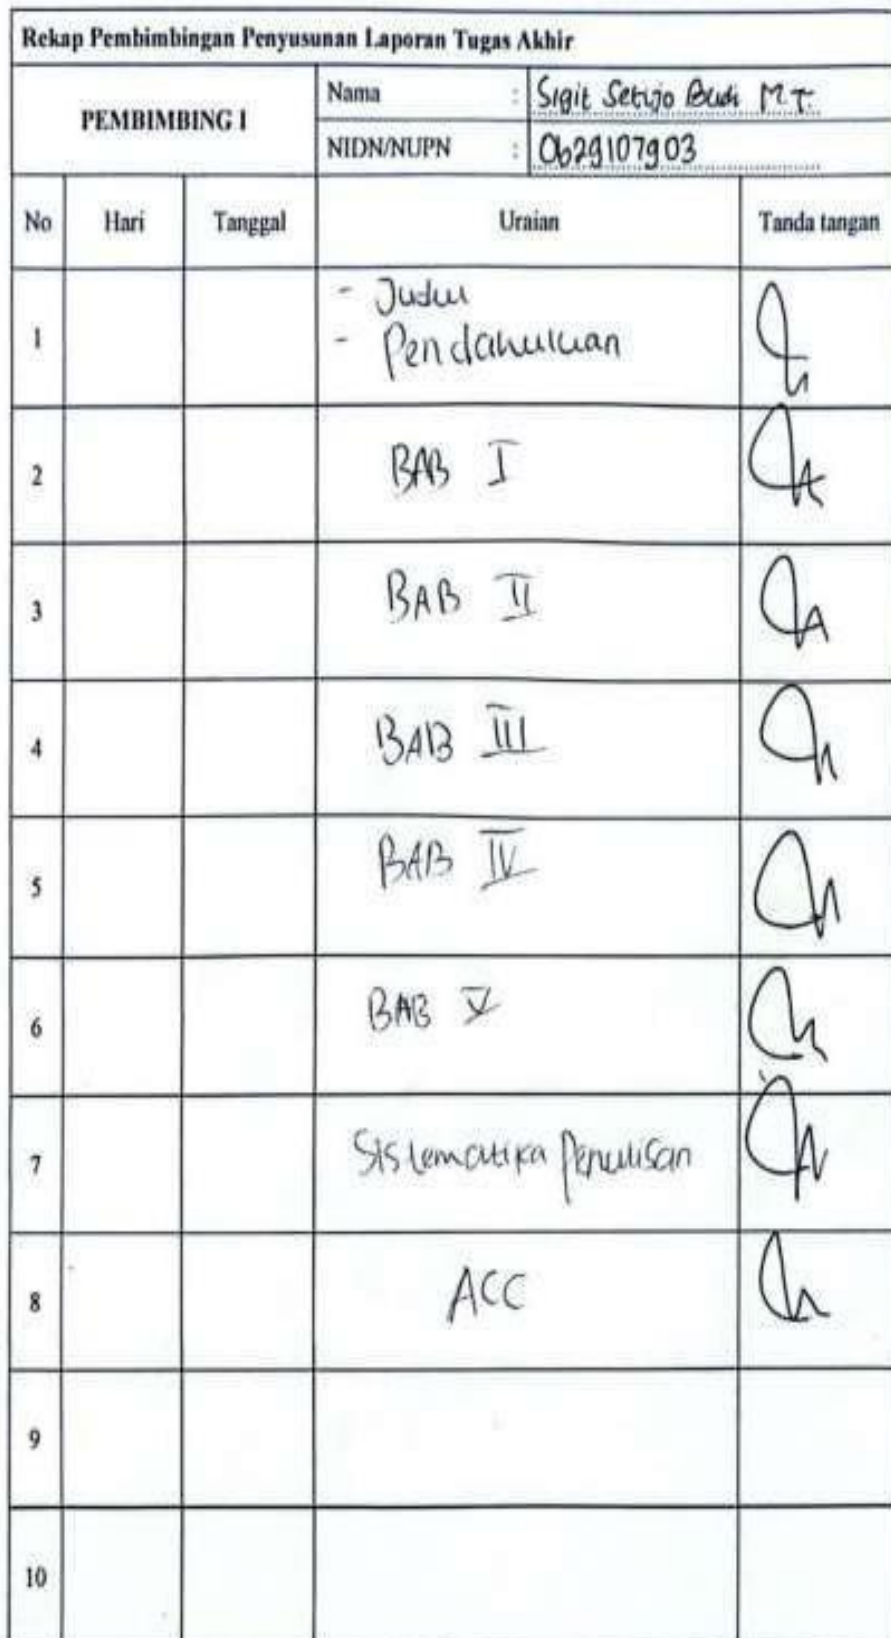 Rekap Pembimbingan Penyusunan Laporan Tugas Akhir
PEMBIMBING I
Nama : Sigit Setijo Budi M.T.
NIDN/NUPN : 0629107903
No Hari Tanggal Uraian Tanda tangan
1 - Judul
- Pendahuluan
2 BAB I
3 BAB II
4 BAB III
5 BAB IV
6 BAB V
7 Sistematika Penulisan
8 ACC
9
10